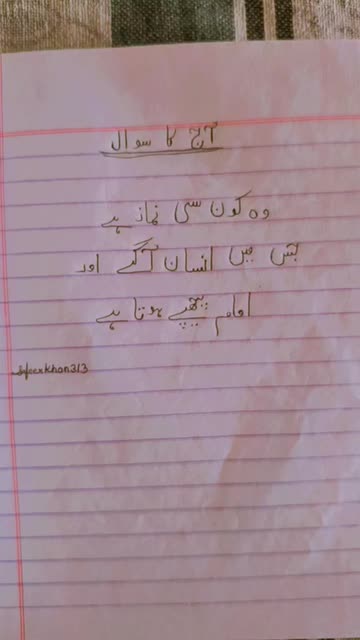 آج کا سوال
وہ کون سی نماز ہے
جس میں انسان آگے اور
امام پیچھے ہوتا ہے